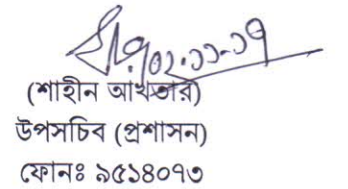 ০২.১১.১৭
(শাহীন আখতার)
উপসচিব (প্রশাসন)
ফোনঃ ৯৫১৪০৭৩